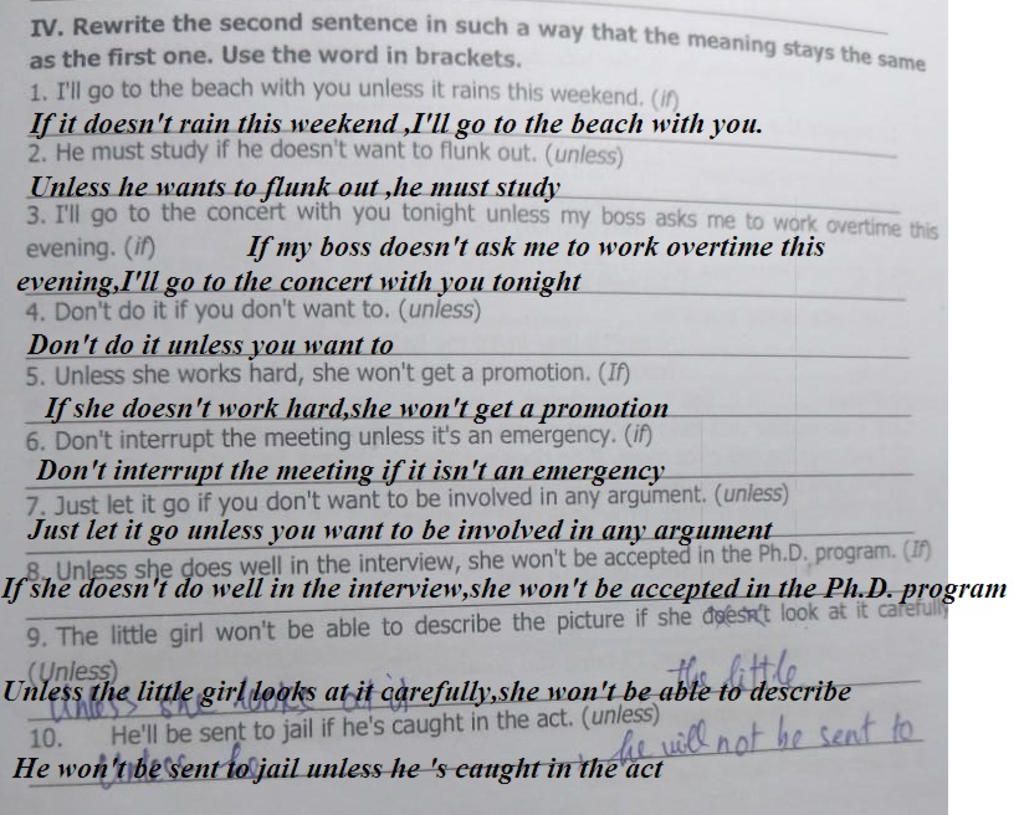 IV. Rewrite the second sentence in such a way that the meaning stays the same
as the first one. Use the word in brackets.
1. I'll go to the beach with you unless it rains this weekend. (if)
If it doesn't rain this weekend ,I'll go to the beach with you.
2. He must study if he doesn't want to flunk out. (unless)
Unless he wants to flunk out ,he must study
3. I'll go to the concert with you tonight unless my boss asks me to work overtime this
evening. (if) If my boss doesn't ask me to work overtime this
evening,I'll go to the concert with you tonight
4. Don't do it if you don't want to. (unless)
Don't do it unless you want to
5. Unless she works hard, she won't get a promotion. (If)
If she doesn't work hard,she won't get a promotion
6. Don't interrupt the meeting unless it's an emergency. (if)
Don't interrupt the meeting if it isn't an emergency
7. Just let it go if you don't want to be involved in any argument. (unless)
Just let it go unless you want to be involved in any argument
8. Unless she does well in the interview, she won't be accepted in the Ph.D. program. (If)
If she doesn't do well in the interview,she won't be accepted in the Ph.D. program
9. The little girl won't be able to describe the picture if she doesn't look at it carefully
(Unless)
the little
Unless the little girl looks at it carefully,she won't be able to describe
Unless she looks at it
10. He'll be sent to jail if he's caught in the act. (unless)
he will not be sent to
He won't be sent to jail unless he 's caught in the act
Unless he